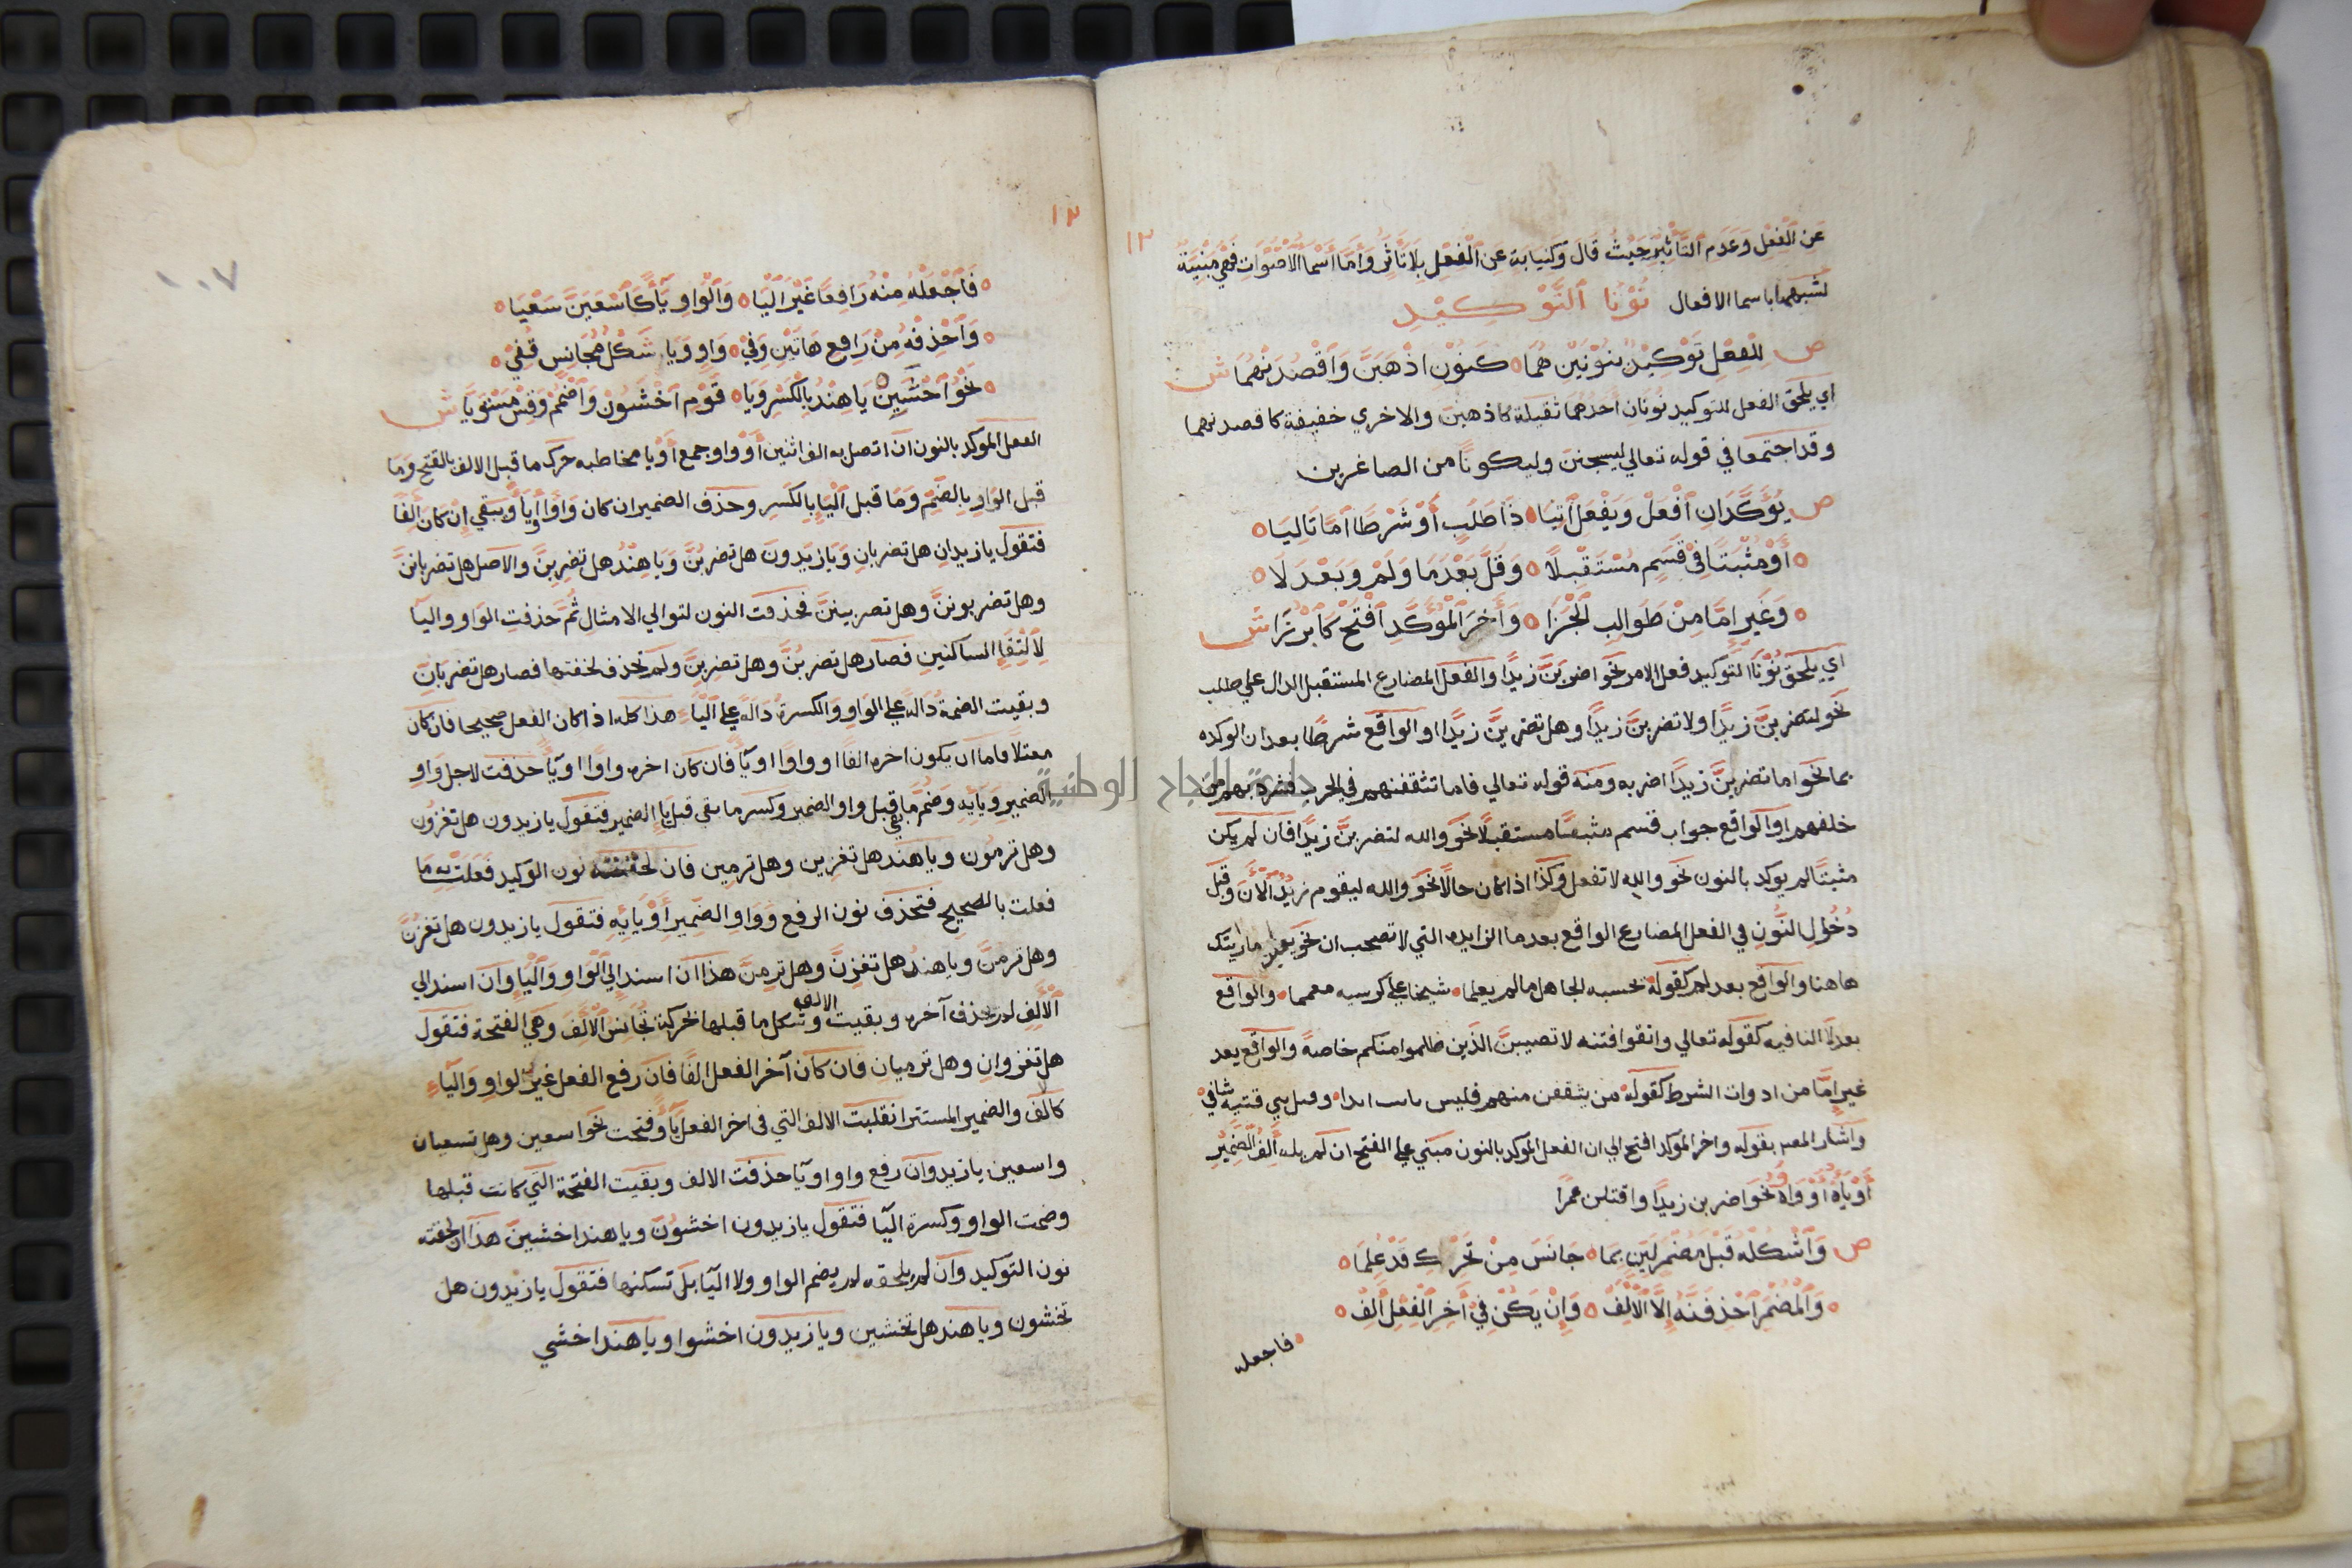 ١٢
عَنِ ٱلْفِعْلِ وَعَدَمِ ٱلتَّأثِيْرِ حَيْثُ قَالَ وَكنيابة عَنِ ٱلْفِعْلِ بِلَا تَأَثُّرٍ وَأَمَّا أَسْمَآءُ ٱلْأَصْوَاتِ فَهِيَ مَبْنِيَّةٌ
لشبهها باسما الافعال نُوْنَا ٱلتَّوْكِيْدِ
ص لِلْفِعْلِ تَوْكِيْدٌ بِنُوْنَيْنِ هُمَا ۞ كَنُوْنِ اذْهَبَنَّ وَٱقْصُدَنْهُمَا ش
اي يلحق الفعل للتوكيد نونان احدهما ثقيلة كاذهبنّ والاخري خفيفة كاقصدنهما
وقد اجتمعا في قوله تعالي ليسجننّ وليكونًا من الصاغرين
ص يُؤَكِّدَانِ ٱفْعَلْ وَيَفْعَلْ آتِيَا ۞ ذَا طَلَبٍ أَوْ شَرْطًا امَّا تَالِيَا ۞
۞ أَوْ مُثْبَتًا فِيْ قَسَمٍ مُسْتَقْبَلًا ۞ وَقَلَّ بَعْدَ مَا وَلَمْ وَبَعْدَ لَا ۞
۞ وَغَيْرِ إِمَّا مِنْ طَوَالِبِ ٱلْجَزَا ۞ وَآخِرَ ٱلْمُؤَكَّدِ ٱفْتَحْ كَٱبْرُزَا ش
اي يلحق نُوْنَا التوكيد فعل الامر نحو اضربَنَّ زيدًا والفعل المضارع المستقبل الدال علي طلب
نحو لتضربنَّ زيدًا ولا تضربنَّ زيدًا وهل تضربنَّ زيدًا او الواقع شرطًا بعد ان الموكده
بما نحو اما تضربنَّ زيدًا اضربه ومنه قوله تعالي فاما تثقفنهم في الحرب فشرد بهم من
خلفهم او الواقع جواب قسم مثبتًا مستقبلًا نحو والله لتضربنَّ زيدًا فان لم يكن
مثبتًا لم يوكد بالنون نحو والله لا تفعل وكذا اذا كان حالًا نحو والله ليقوم زيدٌ الْأَنَ وقل
دُخُولِ النُّونِ في الفعل المضارع الواقع بعد ما الزايده التي لا تصحب ان نحو بعين ما ارينك
هاهنا والواقع بعد لم كقوله ۞ يحسبه الجاهل ما لم يعلما ۞ شيخا علي كرسيه معمما ۞ والواقع
بعد لا النافيه كقوله تعالي واتقوا فتنه لا تصيبنَّ الذين ظلموا منكم خاصةً والواقع بعد
غير إِمَّا من ادوات الشرط كقوله ۞ من يثقفن منهم فليس بايب ابدا ۞ وقتل بني قتيبة شافي ۞
واشار المصـ بقوله واخر الموكد افتح الي ان الفعل الموكد بالنون مبني علي الفتح ان لم يله أَلِفُ الضَّمِيْرِ
أَوْ يَاؤُهُ أَوْ وَاوُهُ نحو اضربن زيدًا واقتلن عمرًا
ص وَٱشْكُلْهُ قَبْلَ مُضْمَرٍ لَيْنٍ بِمَا ۞ جَانَسَ مِنْ تَحَرُّكٍ قَدْ عُلِمَا ۞
۞ وَٱلْمُضْمَرَ ٱحْذِفَنَّهُ إِلَّا ٱلْأَلِفْ ۞ وَإِنْ يَكُنْ فِيْ آخِرِ ٱلْفِعْلِ أَلِفْ ۞
۞ فاجعله
١٢
١٠٧
۞ فَٱجْعَلْهُ مِنْهُ رَافِعًا غَيْرَ ٱلْيَا ۞ وَٱلْوَاوِ يَآءً كَٱسْعَيَنَّ سَعْيَا ۞
۞ وَٱحْذِفْهُ مِنْ رَافِعِ هَاتَيْنِ وَفِيْ ۞ وَاوٍ وَيَا شَكْلٌ مُجَانِسٌ قُفِيْ ۞
۞ نَحْوُ ٱخْشَيِنْ يَا هِنْدُ بِٱلْكَسْرِ وَيَا ۞ قَوْمِ ٱخْشَوُنْ وَٱضْمُمْ وَقِسْ مُسَوِّيَا ش
الفعل الموكد بالنون ان اتصل به الف اثنين أَوْ واو جمع أَوْ يا مخاطبه حرك ما قبل الالف بالفتح وَمَا
قبل الواوِ بِالضَّمِّ وَمَا قبل ٱلْيَاءِ بِالكَسرِ وحذف الضمير ان كان وَاوًا أو يَاءً وَيَبقي إِن كانَ أَلِفًا
فتقول يا زيدانِ هل تضربانِ وَيا زيدونَ هل تضربُنَّ وَيا هِنْدُ هل تضرِبِنَّ والاصل هل تضربانِنَّ
وهل تضربونَنَّ وهل تضربينَنَّ فحذفت النون لتوالي الامثال ثُمَّ حذفتِ الوَاو واليآ
لِالْتِقَاءِ الساكنينِ فصار هل تضربُنَّ وهل تضربِنَّ ولم تحذف لخفتها فصار هل تضربانِّ
وبقيت الضمة دَالة علي الواوِ والكسرة دَالة علي اليَاءِ هذا كله اذا كان الفعل صحيحا فان كان
معتلًا فاما ان يكون اخره الفا او واوًا او يآءً فان كان اخره واوًا او يآءً حذفت لاجل واوِ
الضمير وَيَايِهِ وَضُمَّ ما بقي قبل واو الضمير وكسر ما بقي قبل يَاءِ الضمير فتقول يا زيدون هل تغزُون
وهل ترمُون ويا هند هل تغزين وهل ترمين فان لحقته نون التوكيد فَعَلْتَ بِهِ مَا
فعلت بالصحيح فتحذف نون الرفع وَوَاوِ الضَّمِيرِ أَوْ يَايِهِ فتقول يا زيدون هل تغزُنَّ
وهل ترمنَّ ويا هندُ هل تغزِنَّ وهل ترمِنَّ هذا ان اسند إِلي ٱلْوَاوِ وَٱلْيَاءِ وان اسند الي
ٱلْأَلِفِ لم يحذف آخره وبقيت الالف وشكل ما قبلها بحركة تُجَانِسُ ٱلْأَلِفَ وهي الفتحة فتقول
هل تغزوانِ وهل ترميانِ فان كان آخر الفعل الفًا فان رفع الفعل غير الواوِ وَاليَاءِ
كالف والضمير المستتر انقلبت الالف التي في اخر الفعل يَاءً وفتحت نحو اسعين وهل تسعيان
واسعين يا زيد وان رفع واوا او يآ حذفت الالف وبقيت الفتحة التي كانت قبلها
وضمت الواو وكسرة اليآ فتقول يا زيدون اخشوُنَّ ويا هند اخشينَّ هذا ان لحقته
نون التوكيد وان لم يلحقه لم يضم الواو ولا اليآ بل تسكنها فتقول يا زيدون هل
تخشون ويا هند هل تخشين ويا زيدون اخشوا ويا هند اخشي
جامعة النجاح الوطنية